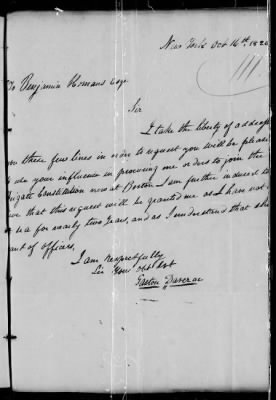 New York Oct 16th. 1820
To Benjamin Homans Esqr
Sir
I take the liberty of address
these few lines in order to request you will be pleas
use your influence in procuring me orders to join the
rigate Constitution now at Boston I am further induced to
that this request will be granted me as I have not
sea for nearly two Years, and as I understand that she
ant of officers.
I am respectfully
Sir Your Obt Svt
Gaston Daverac